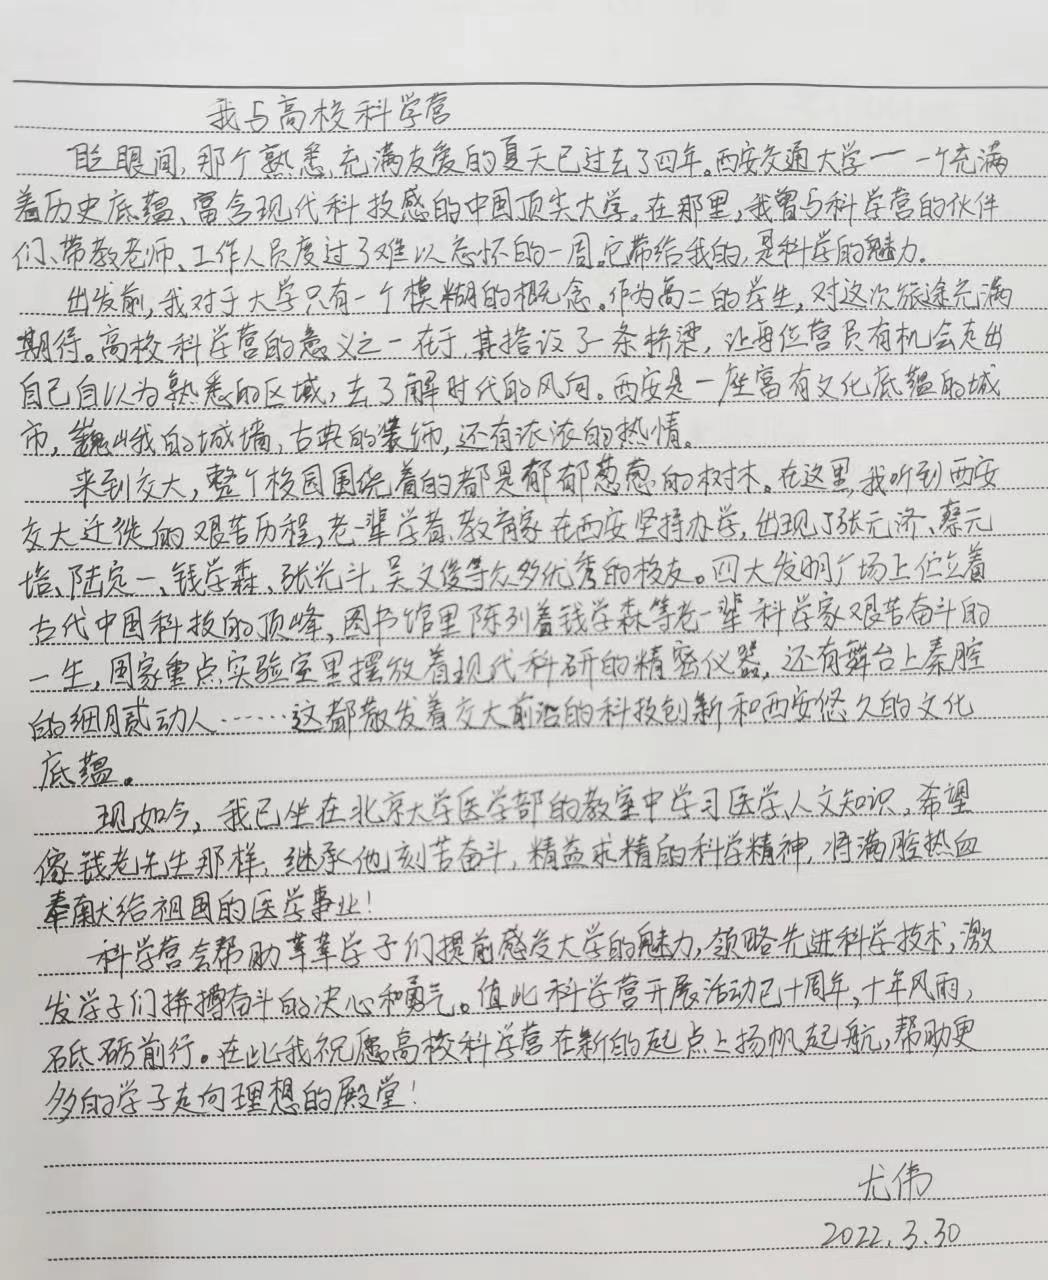 我与高校科学营
眨眼间,那个熟悉、充满友爱的夏天已过去了四年。西安交通大学——一个充满
着历史底蕴、富含现代科技感的中国顶尖大学。在那里,我曾与科学营的伙伴
们、带教老师、工作人员度过了难以忘怀的一周。它带给我的,是科学的魅力。
出发前,我对于大学只有一个模糊的概念。作为高二的学生,对这次旅途充满
期待。高校科学营的意义之一在于,其搭设了一条桥梁,让每位营员有机会走出
自己自以为熟悉的区域,去了解时代的风向。西安是一座富有文化底蕴的城
市,巍峨的城墙,古典的装饰,还有浓浓的热情。
来到交大,整个校园围绕着的都是郁郁葱葱的树木。在这里,我听到西安
交大迁徙的艰苦历程,老一辈学者、教育家在西安坚持办学,出现了张元济、蔡元
培、陆定一、钱学森、张光斗、吴文俊等众多优秀的校友。四大发明广场上伫立着
古代中国科技的顶峰,图书馆里陈列着钱学森等老一辈科学家艰苦奋斗的
一生,国家重点实验室里摆放着现代科研的精密仪器,还有舞台上秦腔
的细腻动人……这都散发着交大前沿的科技创新和西安悠久的文化
底蕴。
现如今,我已坐在北京大学医学部的教室中学习医学人文知识,希望
像钱老先生那样,继承他刻苦奋斗,精益求精的科学精神,将满腔热血
奉献给祖国的医学事业!
科学营会帮助莘莘学子们提前感受大学的魅力,领略先进科学技术,激
发学子们拼搏奋斗的决心和勇气。值此科学营开展活动已十周年,十年风雨,
砥砺前行。在此我祝愿高校科学营在新的起点上扬帆起航,帮助更
多的学子走向理想的殿堂!
尤伟
2022.3.30